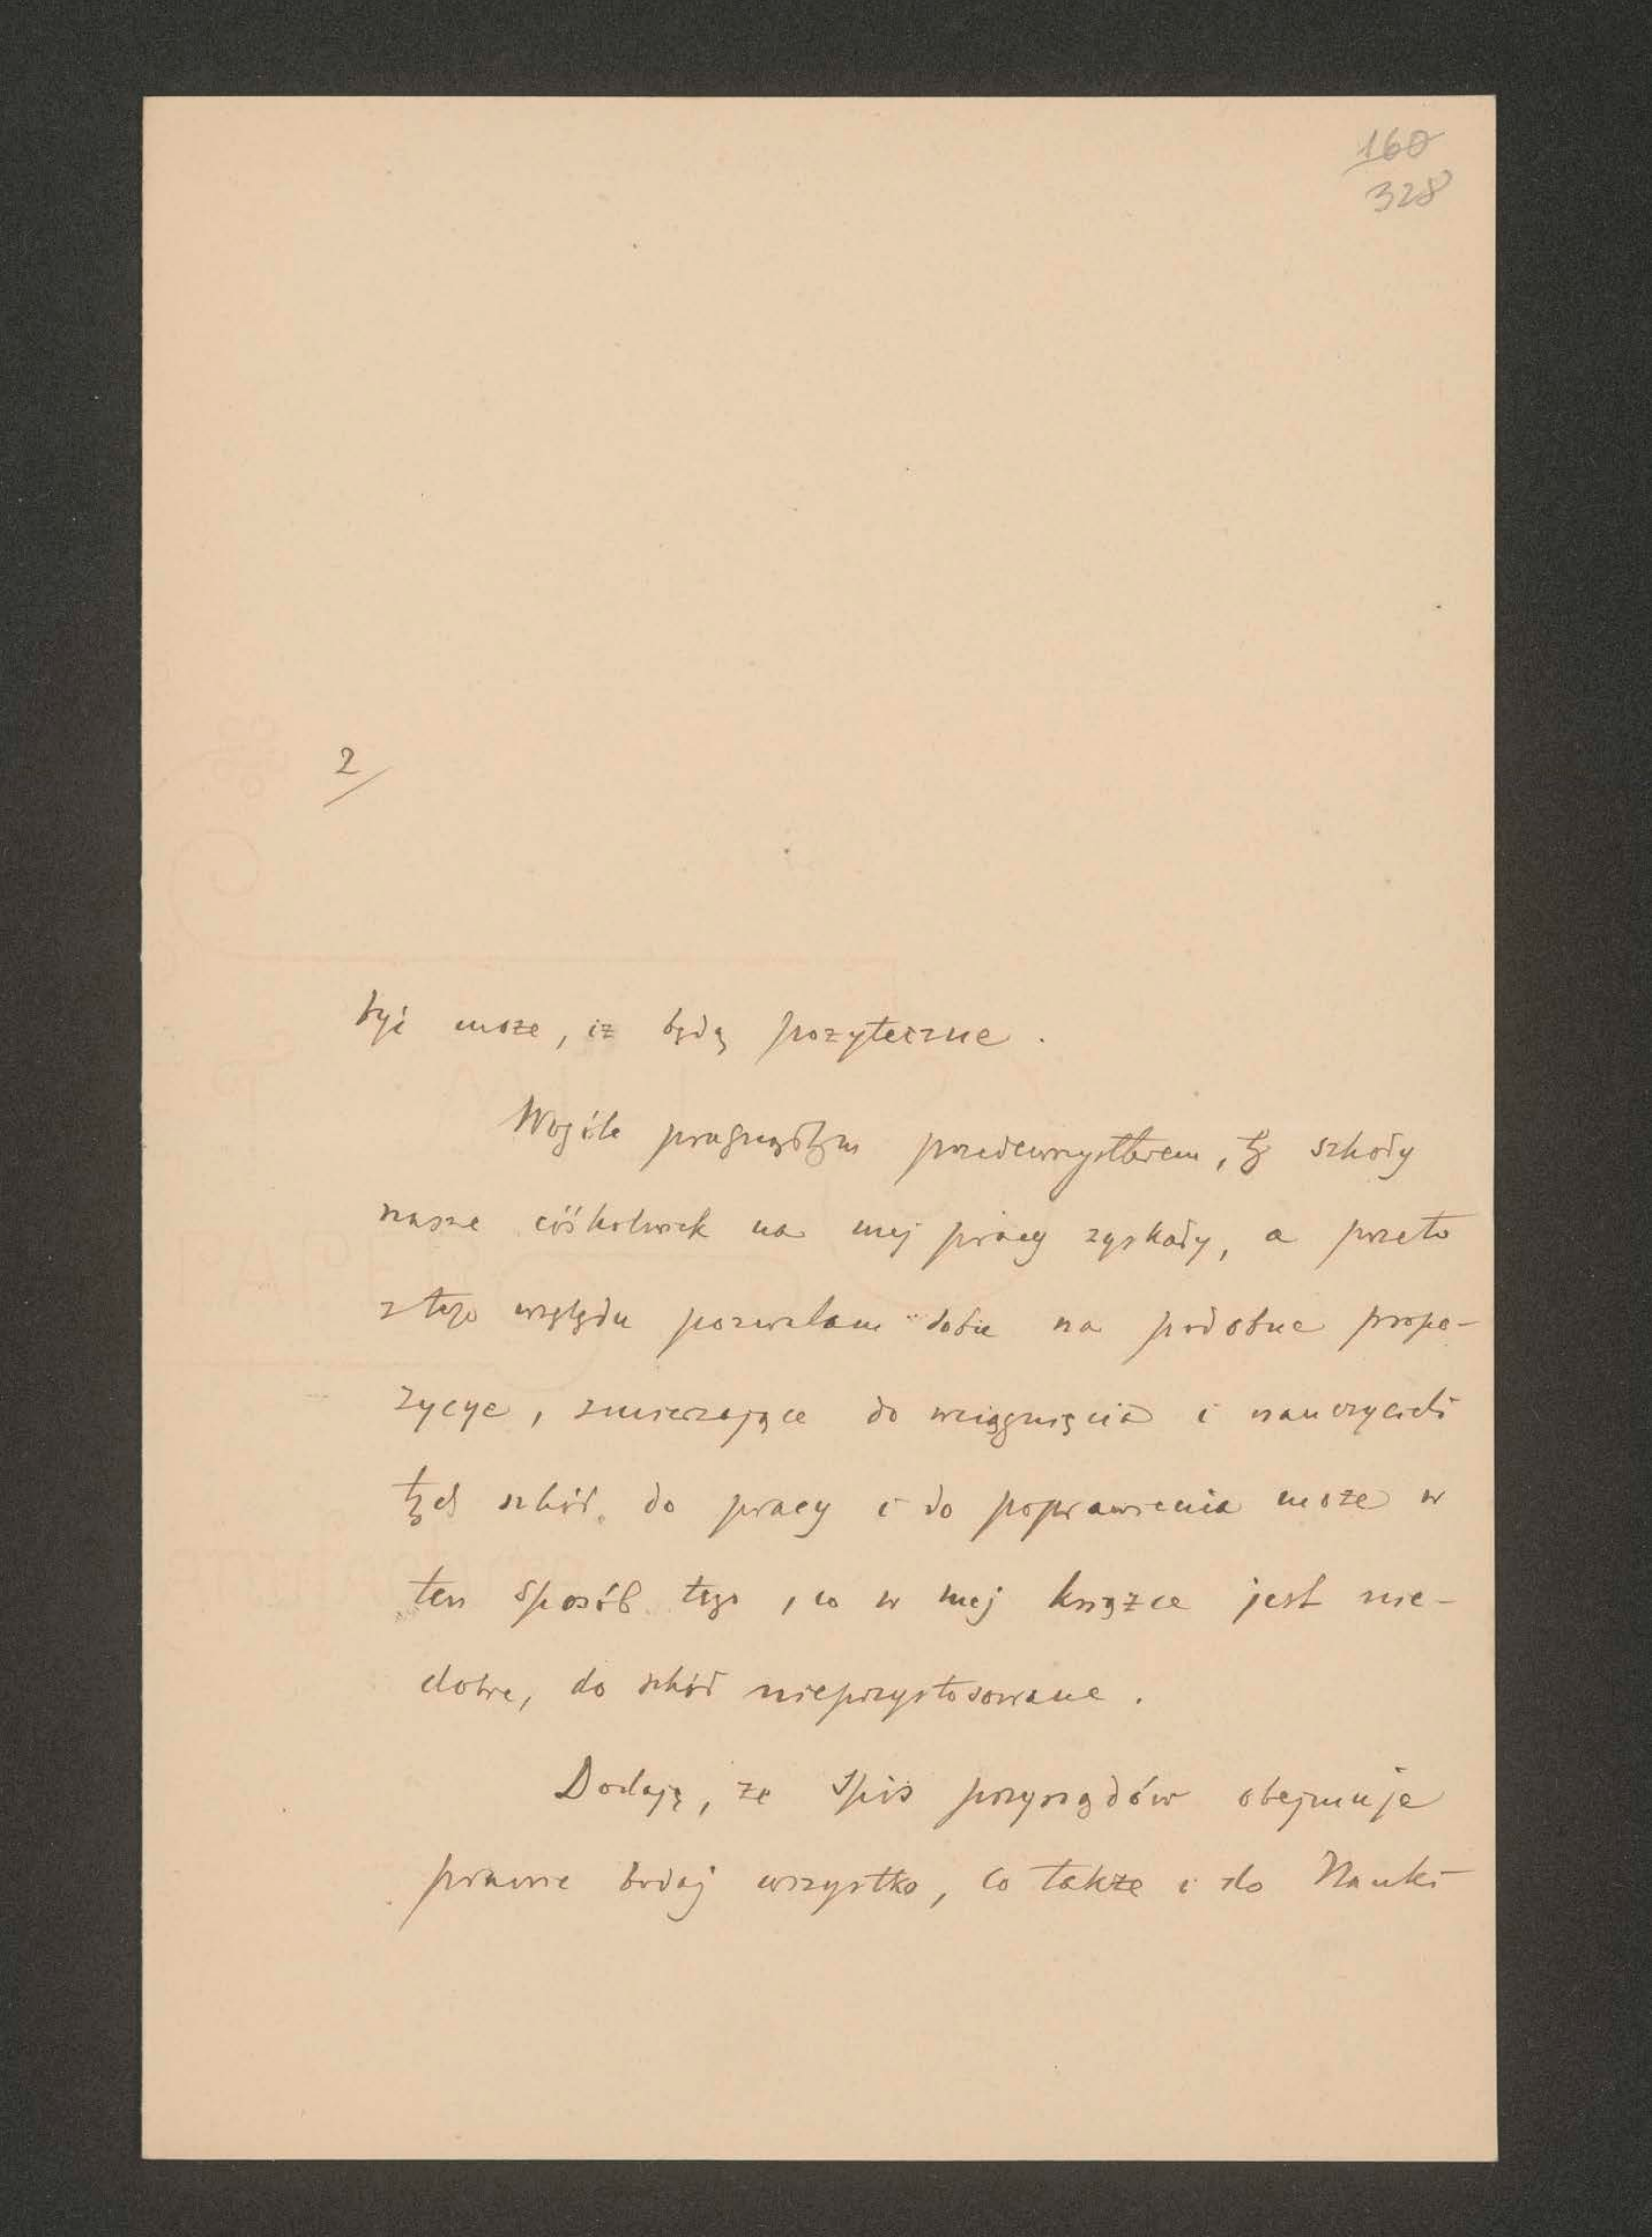 160
328
2
być może, iż będą pożyteczne.
Wogóle pragnąłbym przedewszystkiem, by szkoły
nasze cóśkolwiek na mej pracy zyskały, a przeto
z tego względu pozwalam sobie na podobne propo-
zycye, zmierzające do wciągnięcia i nauczycieli
tych szkół do pracy i do poprawienia może w
ten sposób tego, co w mej książce jest nie-
dobre, do szkół nieprzystosowane.
Dodaję, że spis przyrządów obejmuje
prawie bodaj wszystko, co także i do Nauki